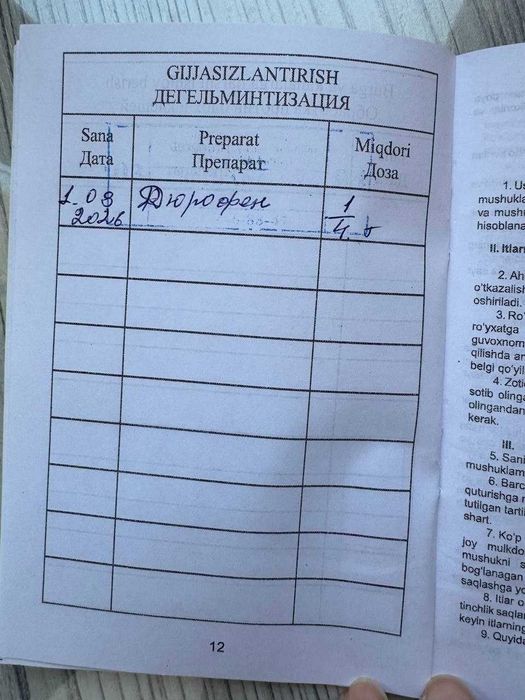 GIJJASIZLANTIRISH
ДЕГЕЛЬМИНТИЗАЦИЯ
Sana
Дата
Preparat
Препарат
Miqdori
Доза
1.03
2026
Дюрофен
1
4
12
1. Us
mushukla
va mushu
hisoblana
II. Itlarn
2. Ah
o'tkazalish
oshiriladi.
3. Ro'
ro'yxatga
guvoxnom
qilishda an
belgi qo'yil
4. Zotid
sotib olinga
olingandan
kerak.
III.
5. Sani
mushuklarn
6. Barc
quturishga r
tutilgan tarti
shart.
7. Ko'p
joy mulkdo
mushukni s
bog'lanagan
saqlashga yo
8. Itlar o
tinchlik saqlan
keyin itlarning
9. Quyida